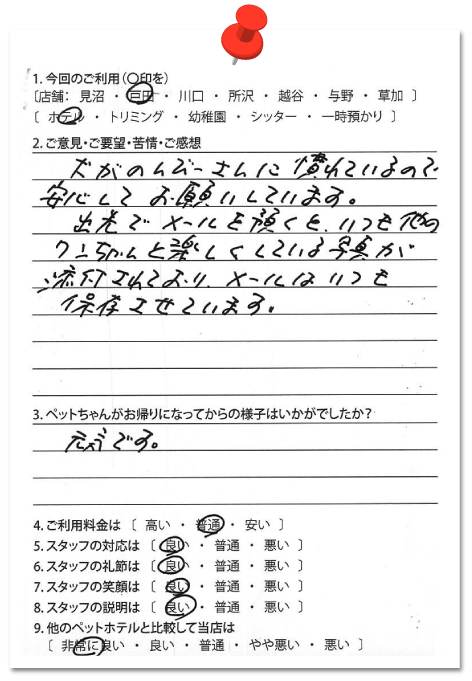 1. 今回のご利用(〇印を)
〔店舗: 見沼 ・ 戸田 ・ 川口 ・ 所沢 ・ 越谷 ・ 与野 ・ 草加 〕
〔 ホテル ・ トリミング ・ 幼稚園 ・ シッター ・ 一時預かり 〕
2. ご意見・ご要望・苦情・ご感想
犬がのんびーさんに慣れているので
安心してお願いしています。
出先でメールを頂くと、いつも他の
ワンちゃんと楽しくしている写真が
添付されており、メールはいつも
保存させています。
3. ペットちゃんがお帰りになってからの様子はいかがでしたか?
元気です。
4. ご利用料金は 〔 高い ・ 普通 ・ 安い 〕
5. スタッフの対応は 〔 良い ・ 普通 ・ 悪い 〕
6. スタッフの礼節は 〔 良い ・ 普通 ・ 悪い 〕
7. スタッフの笑顔は 〔 良い ・ 普通 ・ 悪い 〕
8. スタッフの説明は 〔 良い ・ 普通 ・ 悪い 〕
9. 他のペットホテルと比較して当店は
〔 非常に良い ・ 良い ・ 普通 ・ やや悪い ・ 悪い 〕